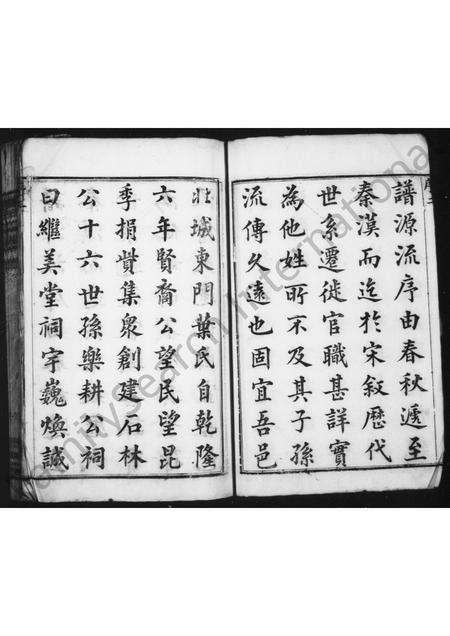 譜源流序由春秋遞至
秦漢而迄於宋叙歴代
世系遷徙官職甚詳實
為他姓所不及其子孫
流傳久遠也固宜吾邑
北城東門葉氏自乾隆
六年賢裔公望民望昆
季捐貲集衆創建石林
公十六世孫樂耕公祠
曰繼美堂祠宇巍煥誠
FamilySearch International